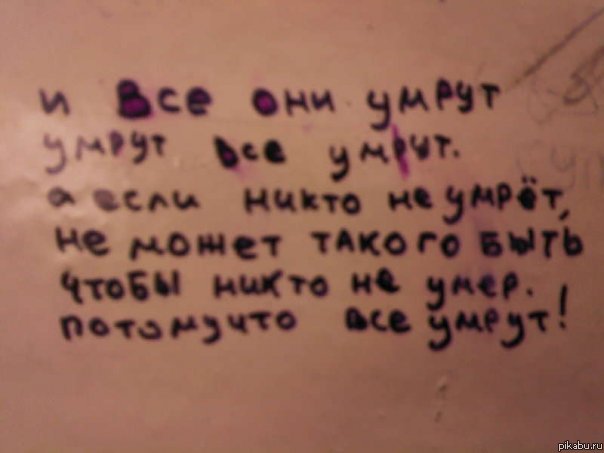 и все они умрут
умрут все умрут.
а если никто не умрёт,
не может такого быть
чтобы никто не умер.
потомучто все умрут!
pikabu.ru